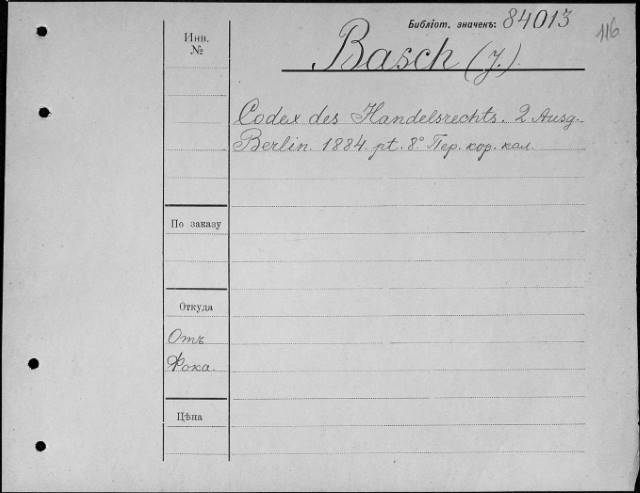 Библіот. значекъ: 84013
116
Инв.
№
Basch (J.).
Codex des Handelsrechts. 2 Ausg.
Berlin. 1884. pt. 8° Пер. кор. кал.
По заказу
Откуда
Отъ
Фока.
Цѣна